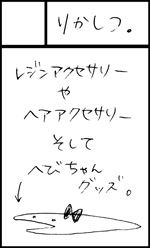 りかしつ。
レジンアクセサリー
や
ヘアアクセサリー
そして
へびちゃん
グッズ。